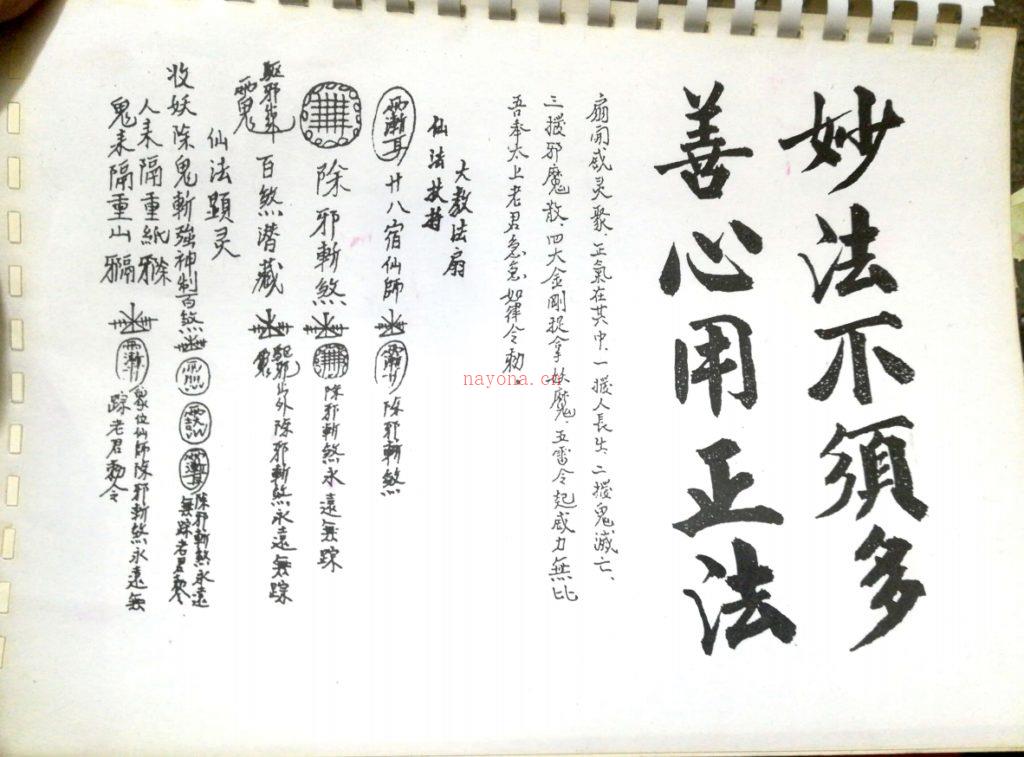 妙法不須多
善心用正法
扇開威灵聚、正氣在其中、一撥人長生、二撥鬼滅亡、
三撥邪魔散、四大金剛捉拿妖魔、五雷令起威力無比
吾奉太上老君急急如律令勅.
大教法扇
仙法扶持
廿八宿仙師 除邪斬煞
除邪斬煞 除邪斬煞永遠無踪
驅邪 百煞潛藏 驅邪出外除邪斬煞永遠無踪
仙法顕灵
收妖除鬼斬強神制百煞 除邪斬煞永遠無踪老君勅令
人来隔重紙
鬼来隔重山 象位仙師除邪斬煞永遠無踪老君勅令
nayona.cn